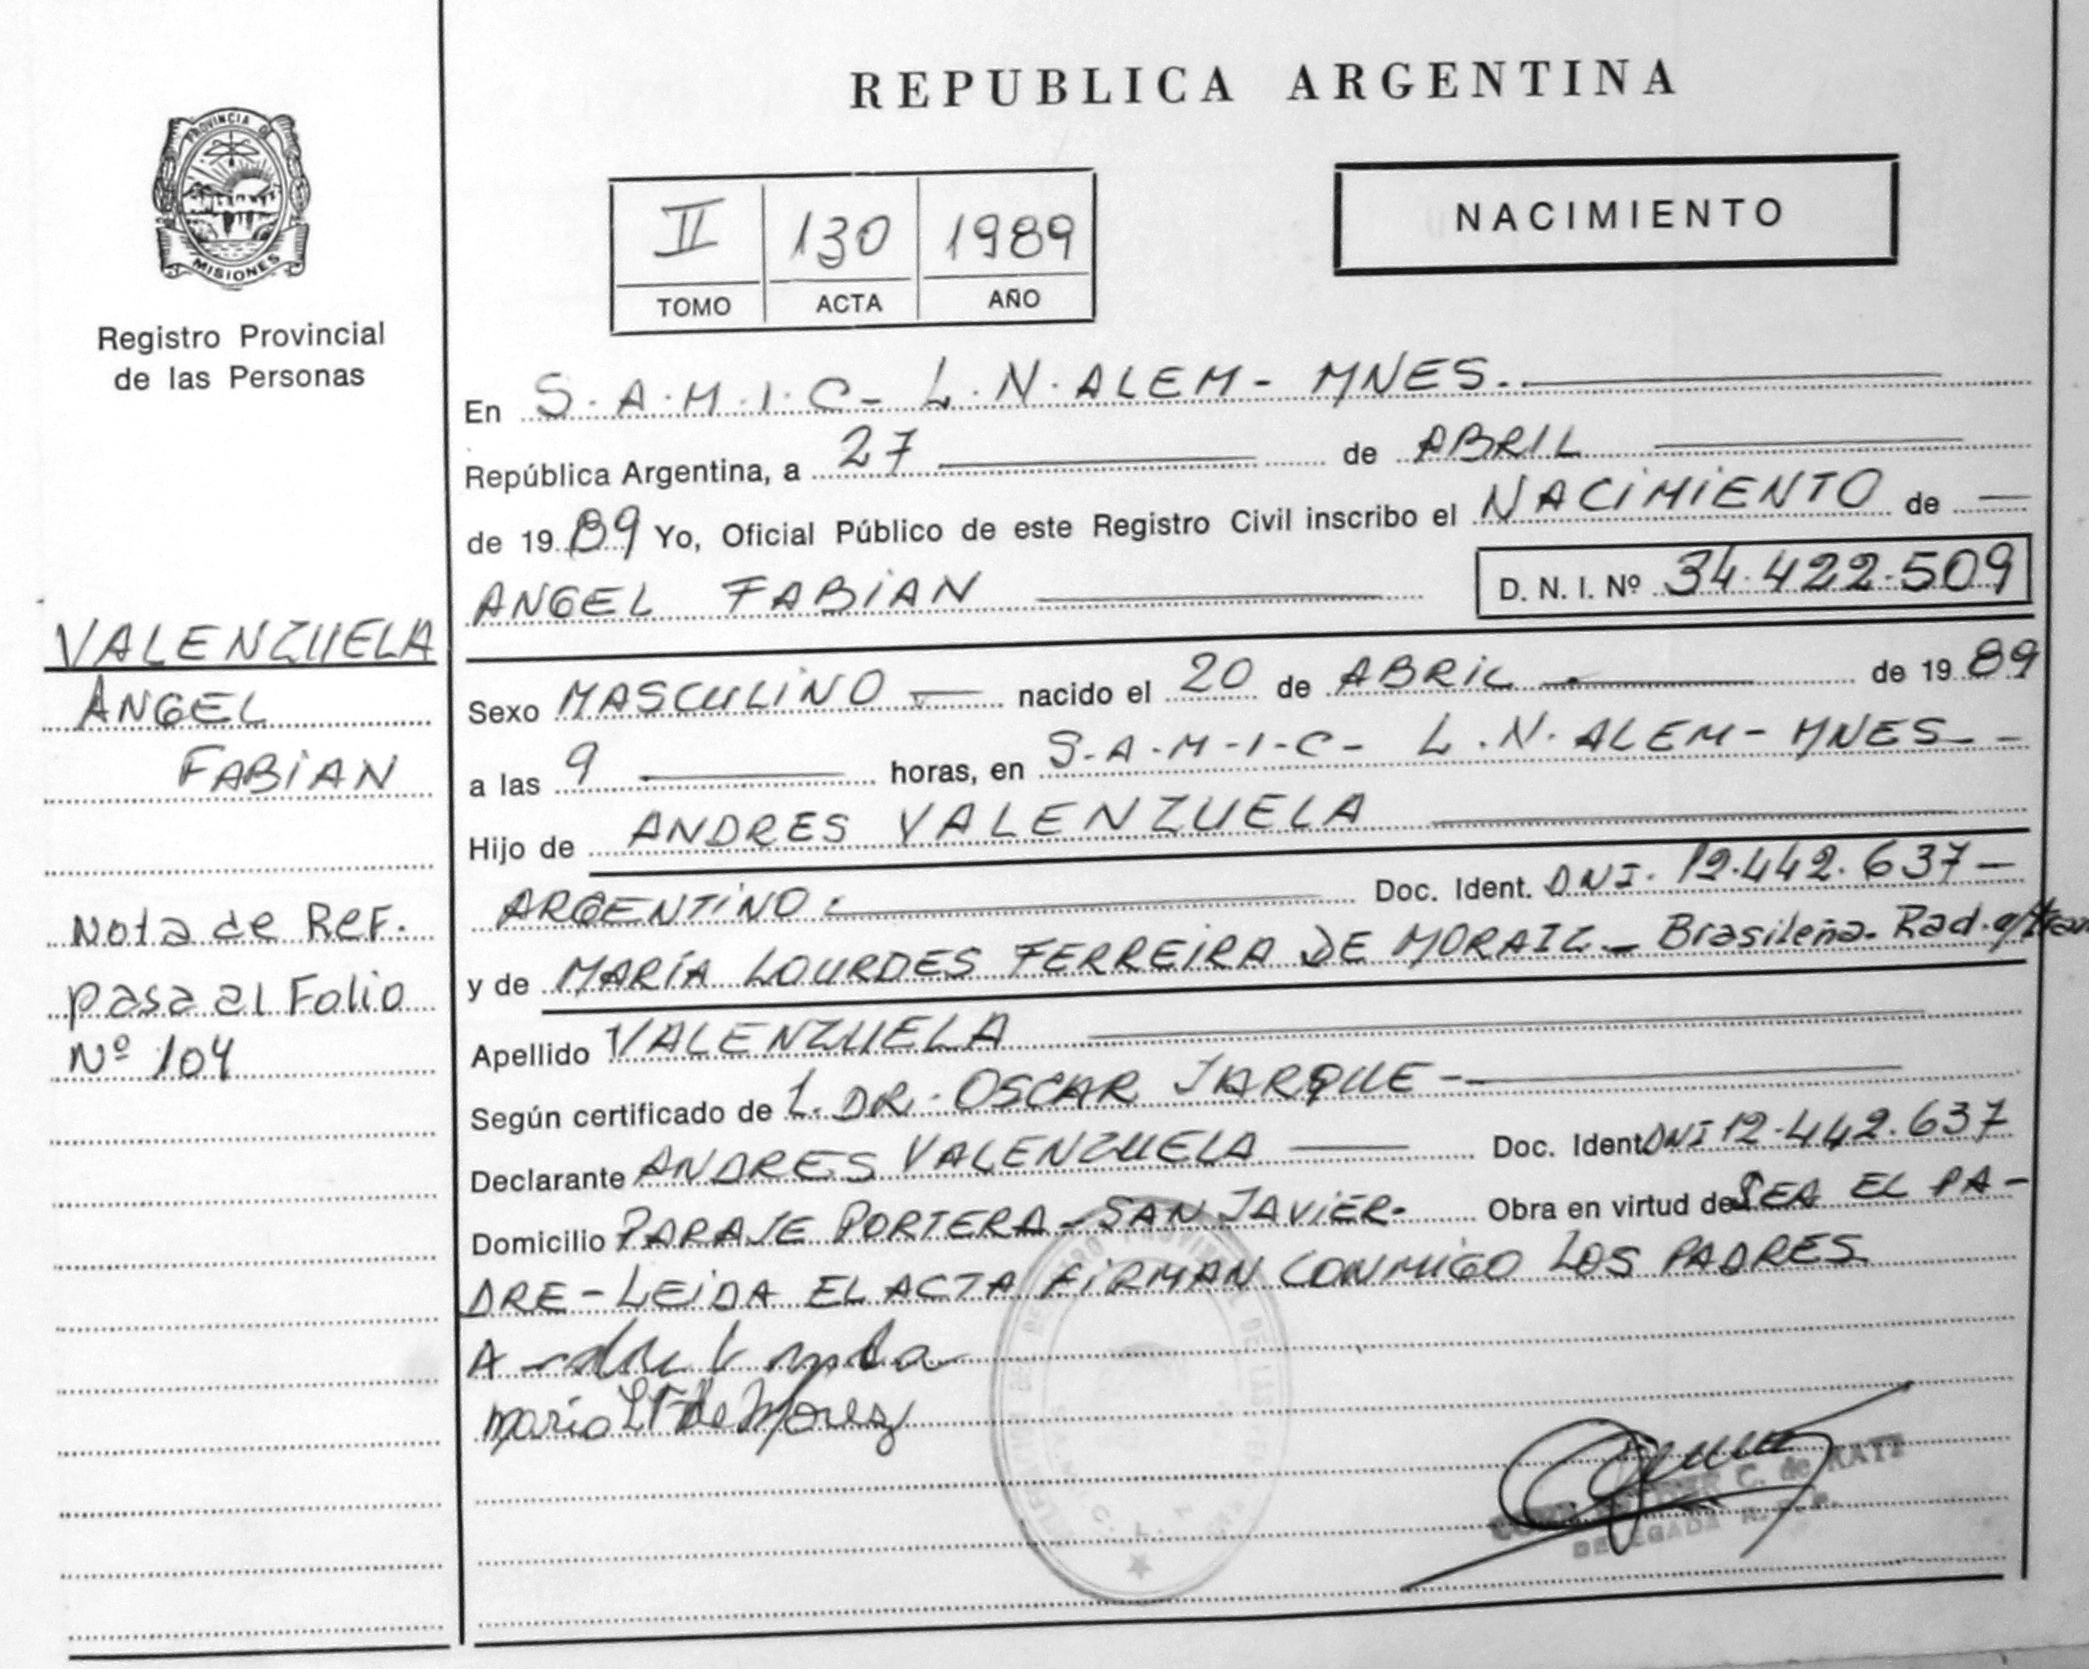 REPUBLICA ARGENTINA
PROVINCIA DE
MISIONES
Registro Provincial
de las Personas
II 130 1989
TOMO ACTA AÑO
NACIMIENTO
En S.A.M.I.C- L.N.ALEM- MNES.
República Argentina, a 27 de ABRIL
de 1989 Yo, Oficial Público de este Registro Civil inscribo el NACIMIENTO de
ANGEL FABIAN D. N. I. Nº 34.422.509
VALENZUELA
ANGEL
FABIAN
Sexo MASCULINO nacido el 20 de ABRIL de 1989
a las 9 horas, en S-A-M-I-C- L.N. ALEM- MNES-
Hijo de ANDRES VALENZUELA
ARGENTINO. Doc. Ident. DNI. 12.442.637-
y de MARÍA LOURDES FERREIRA DE MORAIL- Brasileña. Rad.
Nota de Ref.
pasa al Folio
Nº 104
Apellido VALENZUELA
Según certificado de 1. DR. OSCAR JARQUE-
Declarante ANDRES VALENZUELA Doc. Ident. DNI 12.442.637
Domicilio PARAJE PORTERA- SAN JAVIER- Obra en virtud de SEA EL PA-
DRE- LEIDA EL ACTA FIRMAN CONMIGO LOS PADRES.
C. de KATZ
DELEGADA